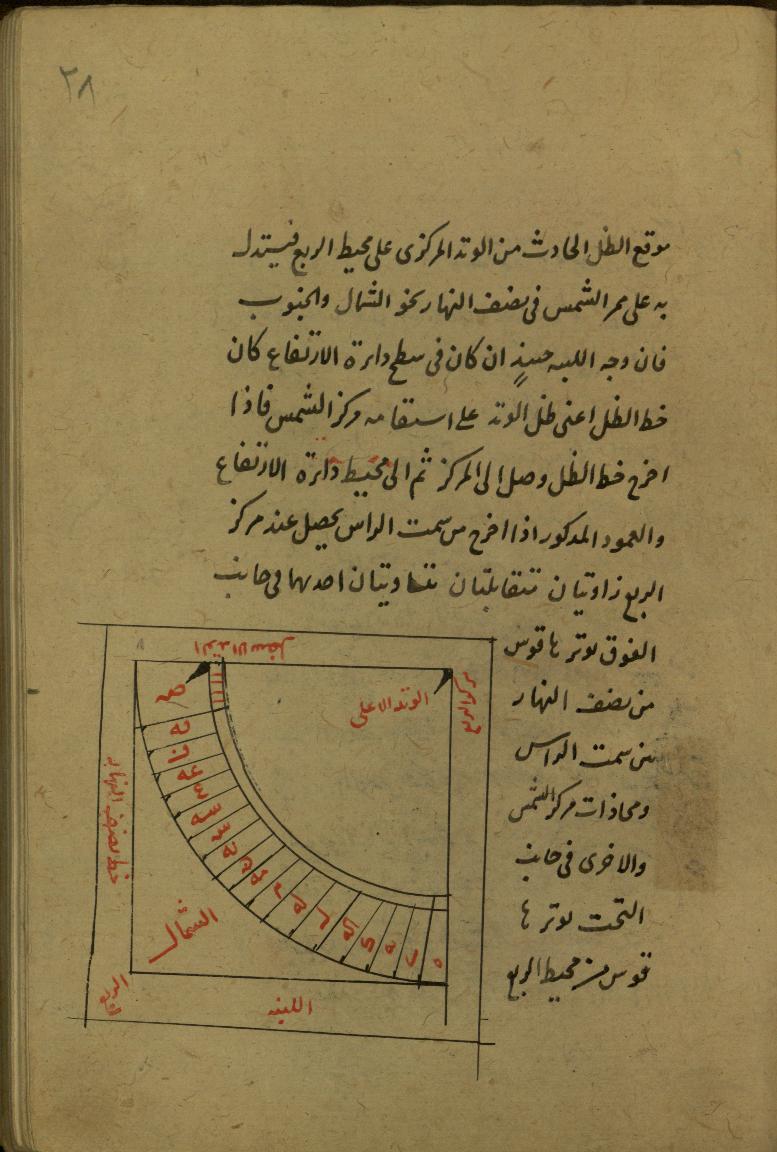 ٢٨
موقع الظل الحادث من الوتد المركزى على محيط الربع فيستدل
به على ممر الشمس فى نصف النهار نحو الشمال والجنوب
فان وجه اللبنه حينئذٍ ان كان فى سطح دايرة الارتفاع كان
خط الظل اعنى ظل الوتد على استقامه مركز الشمس فاذا
اخرج خط الظل وصل الى المركز ثم الى محيط دايرة الارتفاع
والعمود المذكور اذا اخرج من سمت الراس يحصل عند مركز
الربع زاويتان متقابلتان متساويتان احدهما فى جانب
الفوق يوترها قوس
من نصف النهار
بين سمت الراس
ومحاذات مركز الشمس
والاخرى فى جانب
التحت يوترها
قوس من محيط الربع
الوتد الاسفل
الوتد الاعلى
مركز الربع
خط نصف النهار
ص
فه
ف
عه
ع
سه
س
نه
ن
مه
م
له
ل
كه
ك
يه
ى
ه
الشمال
الربع
اللبنه